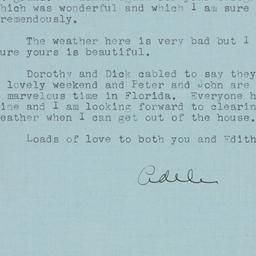 hich was wonderful and which I am sure
remendously.
The weather here is very bad but I
ure yours is beautiful.
Dorothy and Dick cabled to say they
lovely weekend and Peter and John are
marvelous time in Florida. Everyone h
ine and I am looking forward to clearin
eather when I can get out of the house.
Loads of love to both you and Edith
Adele